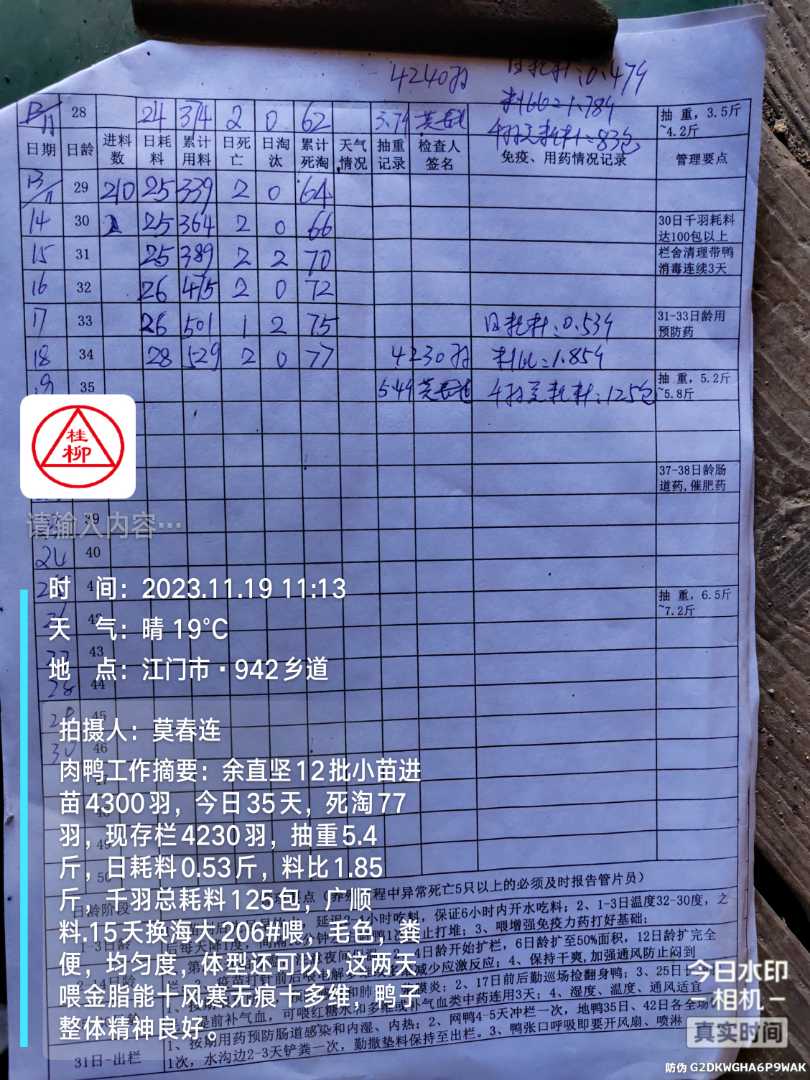 4240羽 日耗料:0.479
料比=1.789
12/11 28 24 314 2 0 62 3.79 莫春连 千羽总耗料:83包 抽重,3.5斤~4.2斤
日期 日龄 进料数 日耗料 累计用料 日死亡 日淘汰 累计死淘 天气情况 抽重记录 检查人签名 免疫、用药情况记录 管理要点
13/11 29 210 25 339 2 0 64
14 30 25 364 2 0 66 30日千羽耗料达100包以上
15 31 25 389 2 2 70 栏舍清理带鸭消毒连续3天
16 32 26 415 2 0 72
17 33 26 501 1 2 75 日耗料:0.539 31-33日龄用预防药
18 34 28 529 2 0 77 4230羽 料比=1.859
19 35 5.49 莫春连 千羽总耗料:125包 抽重,5.2斤~5.8斤
桂柳
37-38日龄肠道药,催肥药
请输入内容…
39
24 40
时 间:2023.11.19 11:13
抽重,6.5斤~7.2斤
天 气:晴 19℃
43
地 点:江门市·942乡道
44
45
拍摄人:莫春连
46
肉鸭工作摘要:余直坚12批小苗进
苗4300羽,今日35天,死淘77
羽,现存栏4230羽,抽重5.4
斤,日耗料0.53斤,料比1.85
斤,千羽总耗料125包,广顺
料.15天换海大206#喂,毛色,粪
便,均匀度,体型还可以,这两天
喂金脂能十风寒无痕十多维,鸭子
整体精神良好。
程中异常死亡5只以上的必须及时报告管片员)
日龄阶段
小时吃料,保证6小时内开水吃料;2、1-3日温度32-30度,之
打堆;3、喂增强免疫力药打好基础;
日龄开始扩栏,6日龄扩至50%面积,12日龄扩完全
减少应激反应;4、保持干爽,加强通风防止闷到
2、17日前后勤巡场捡翻身鸭;3、25日
提前补气血,可喂红糖水和多维或补气血类中药连用3天;4、湿度、温度、通风适宜
31日-出栏
1、按期用药预防肠道感染和内湿、内热;2、网鸭4-5天冲栏一次,地鸭35日、42日各全场
1次,水沟边2-3天铲粪一次,勤撒垫料保持至出栏。3、鸭张口呼吸即要开风扇、喷淋
今日水印
相机
真实时间
防伪 G2DKWGHA6P9WAK